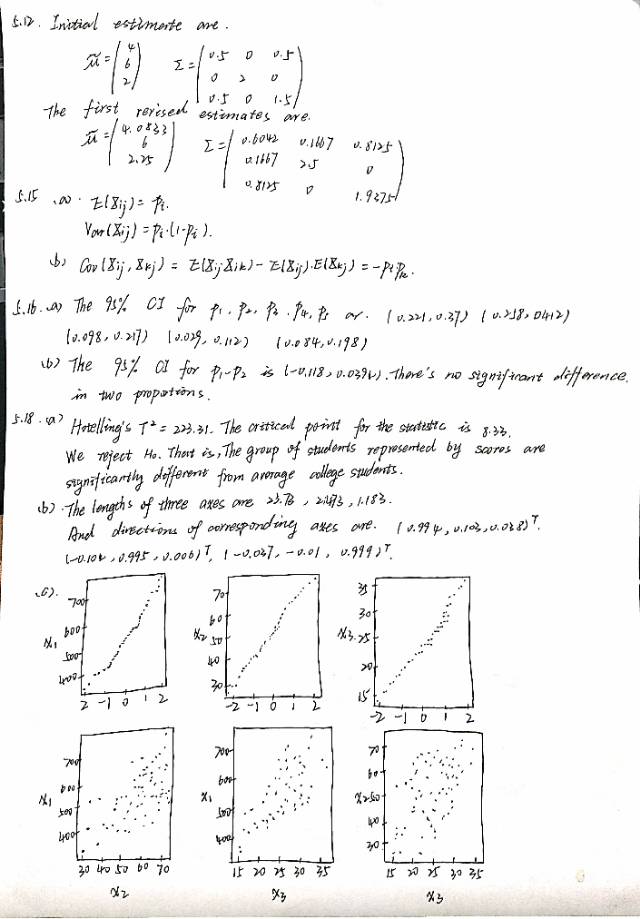 5.12. Initial estimate are.
μ̃ = (4 6 2) Σ = (0.5 0 0.5
0 2 0
0.5 0 1.5)
The first revised estimates are.
μ̃ = (4.0833 6 2.25) Σ = (0.6042 0.1667 0.8125
0.1667 2.5 0
0.8125 0 1.9375)
5.15 (a) E(Xij) = Pi.
Var(Xij) = Pi·(1-Pi).
(b) Cov(Xij, Xkj) = E(XijXik) - E(Xij)·E(Xkj) = -PiPk.
5.16. (a) The 95% CI for P1, P2, P3, P4, P5 ar. (0.221, 0.37) (0.258, 0.412)
(0.098, 0.217) (0.029, 0.112) (0.084, 0.198)
(b) The 95% CI for P1-P2 is (-0.118, 0.0394). There's no significant difference.
in two propotions.
5.18. (a) Hotelling's T² = 223.31. The critical point for the statistic is 8.33.
We reject H0. That is, The group of students represented by scores are
significantly different from average college students.
(b) The lengths of three axes are 23.73, 2.473, 1.183.
And directions of corresponding axes are. (0.994, 0.103, 0.038)ᵀ.
(-0.104, 0.995, 0.006)ᵀ, (-0.037, -0.01, 0.999)ᵀ.
(c).
x1 700 600 500 400
-2 -1 0 1 2
x2 70 60 50 40 30
-2 -1 0 1 2
x3 35 30 25 20 15
-2 -1 0 1 2
x1 700 600 500 400
30 40 50 60 70
x2
x1 700 600 500 400
15 20 25 30 35
x3
x2 70 60 50 40 30
15 20 25 30 35
x3